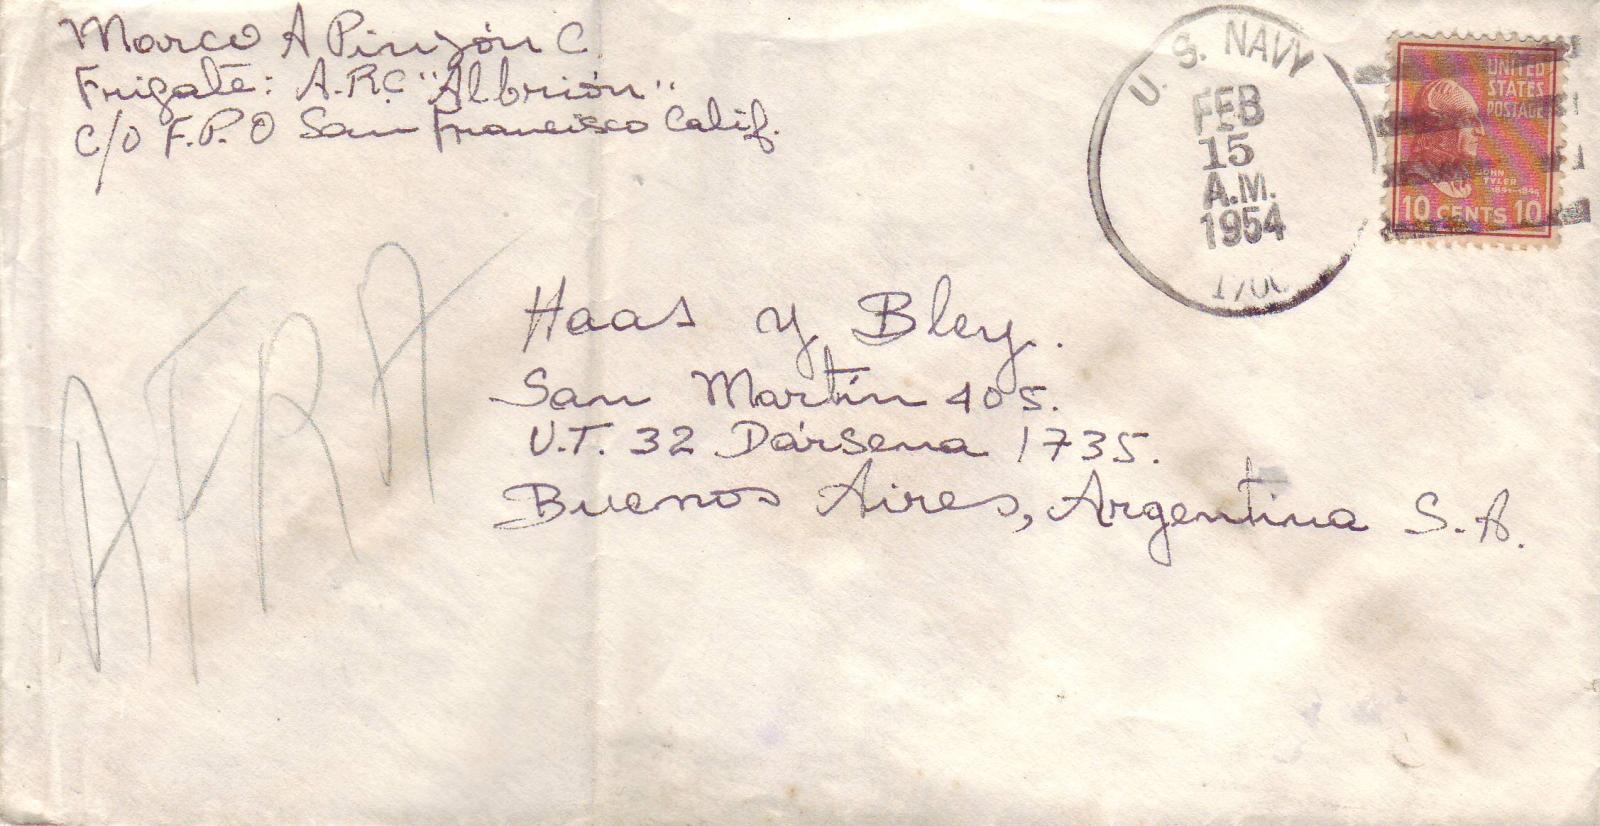 Marco A Pinzón C.
Frigate: A.R.C "Albrión"
c/o F.P.O San Francisco Calif.
U. S. NAVY
FEB
15
A.M.
1954
UNITED
STATES
POSTAGE
JOHN
TYLER
10 CENTS 10
AFRA
Haas y Bley.
San Martín 405.
U.T. 32 Dársena 1735.
Buenos Aires, Argentina S.A.